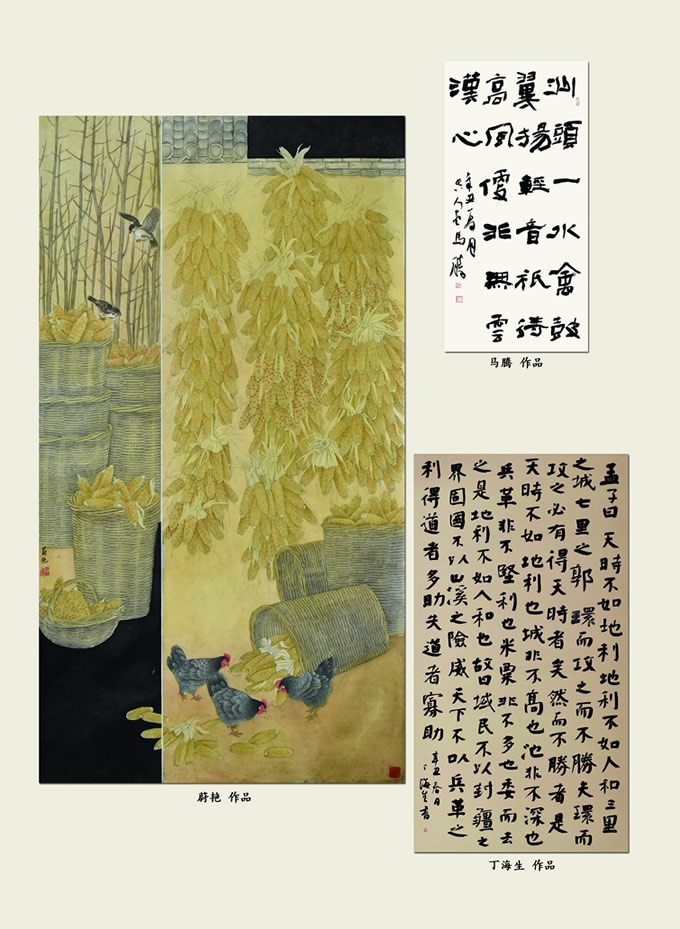 沙頭一水禽鼓
翼揚輕音祇待
高風便非無雲
漢心
辛丑春月
馬騰
马腾 作品
蔚艳
蔚艳 作品
孟子曰天時不如地利地利不如人和三里
之城七里之郭環而攻之而不勝夫環而
攻之必有得天時者矣然而不勝者是
天時不如地利也城非不高也池非不深也
兵革非不堅利也米粟非不多也委而去
之是地利不如人和也故曰域民不以封疆之
界固國不以山溪之險威天下不以兵革之
利得道者多助失道者寡助
辛丑春月
丁海生書
丁海生 作品